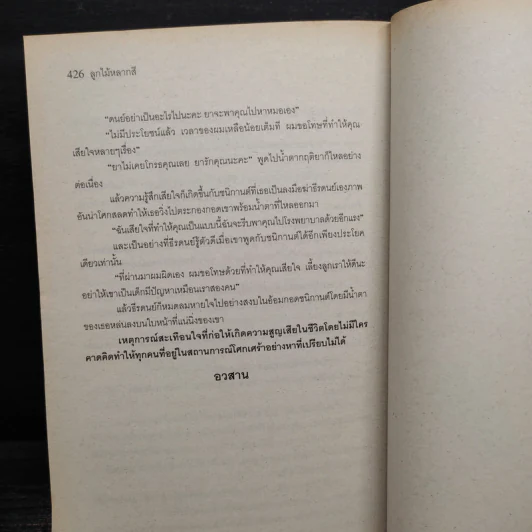 426 ลูกไม้หลากสี
"คนย์อย่าเป็นอะไรไปนะคะ ยาจะพาคุณไปหาหมอเอง"
"ไม่มีประโยชน์แล้ว เวลาของผมเหลือน้อยเต็มที ผมขอโทษที่ทำให้คุณ
เสียใจหลายๆเรื่อง"
"ยาไม่เคยโกรธคุณเลย ยารักคุณนะคะ" พูดไปน้ำตากฤติยาก็ไหลอย่าง
ต่อเนื่อง
แล้วความรู้สึกเสียใจก็เกิดขึ้นกับชนิกานต์ที่เธอเป็นลงมือฆ่าธีรดนย์เองภาพ
อันน่าโศกสลดทำให้เธอวิ่งไปตระกองกอดเขาพร้อมน้ำตาที่ไหลออกมา
"ฉันเสียใจที่ทำให้คุณเป็นแบบนี้ฉันจะรีบพาคุณไปโรงพยาบาลด้วยอีกแรง"
และเป็นอย่างที่ธีรดนย์รู้ตัวดีเมื่อเขาพูดกับชนิกานต์ได้อีกเพียงประโยค
เดียวเท่านั้น
"ที่ผ่านมาผมผิดเอง ผมขอโทษด้วยที่ทำให้เสียใจ เลี้ยงลูกเราให้ดีนะ
อย่าให้เขาเป็นเด็กมีปัญหาเหมือนเราสองคน"
แล้วธีรดนย์ก็หมดลมหายใจไปอย่างสงบในอ้อมกอดชนิกานต์โดยมีน้ำตา
ของเธอหล่นลงบนใบหน้าที่แน่นิ่งของเขา
เหตุการณ์สะเทือนใจที่ก่อให้เกิดความสูญเสียในชีวิตโดยไม่มีใคร
คาดคิดทำให้ทุกคนที่อยู่ในสถานการณ์โศกเศร้าอย่างหาที่เปรียบไม่ได้
อวสาน